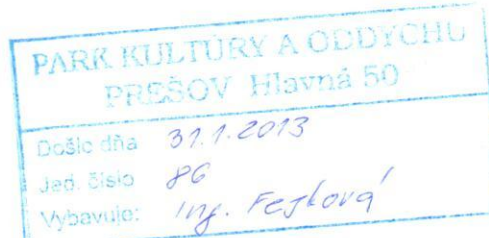 PARK KULTÚRY A ODDYCHU
PREŠOV Hlavná 50
Došlo dňa 31.1.2013
Jed. číslo 86
Vybavuje: Ing. Fejková